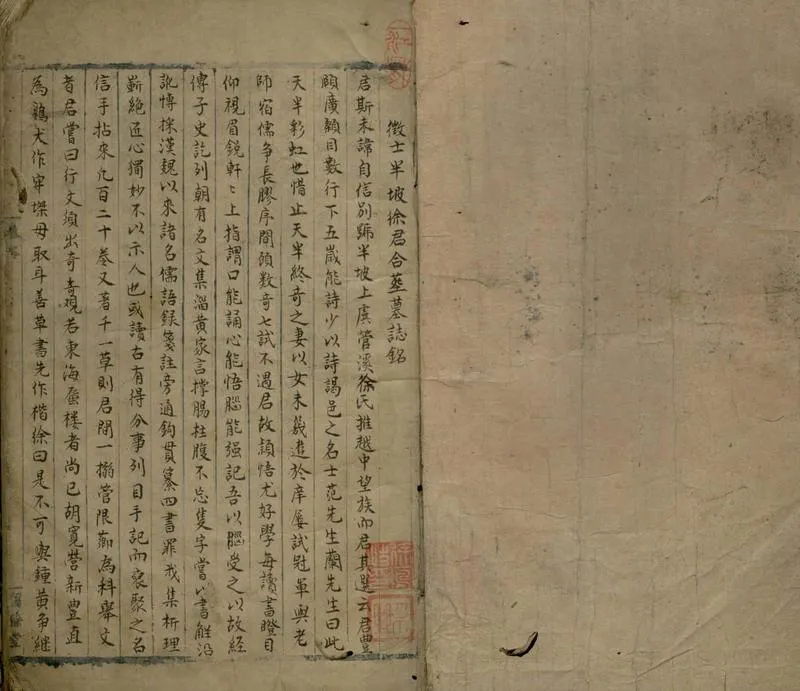 徵士半坡徐君合塟墓誌銘
君斯未諱自信別號半坡上虞管溪徐氏推越中望族而君其選云君豐
頤廣顙目數行下五嵗能詩少以詩謁邑之名士范先生蘭先生曰此
天半彩虹也惜止天半終奇之妻以女未幾進於庠屢試冠軍與老
師宿儒爭長膠序間頭數奇七試不遇君故頴悟尤好學每讀書瞪目
仰視眉鋭軒〻上指謂口能誦心能悟腦能强記吾以腦受之以故經
傳子史訖列朝有名文集濫黄家言撑腸柱腹不忘隻字嘗以書觧沿
訛博採漢魏以來諸名儒語録箋註旁通鈎貫纂四書罪戒集析理
嶄絶匠心獨妙不以示人也或讀古有得分事列目手記而裒聚之名
信手拈來凢百二十巻又著千一草則君間一搦管限莭為科舉文
者君嘗曰行文須出奇奇覌若東海蜃楼者尚已胡寛營新豊直
為鷄犬作牢堞毋取耳善草書先作楷徐曰是不可與鍾黄爭継